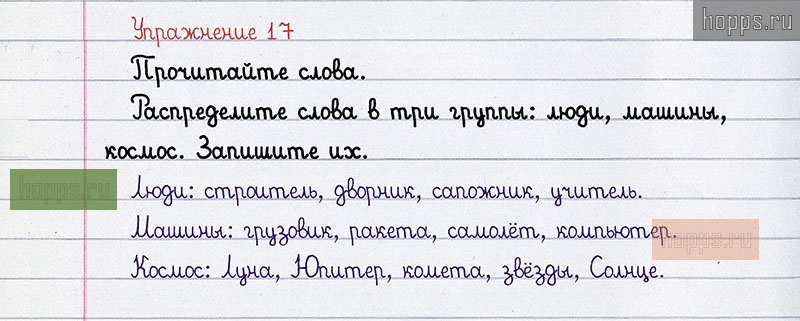 hopps.ru
Упражнение 17
Прочитайте слова.
Распределите слова в три группы: люди, машины,
космос. Запишите их.
hopps.ru
Люди: строитель, дворник, сапожник, учитель.
Машины: грузовик, ракета, самолёт, компьютер.
hopps.ru
Космос: Луна, Юпитер, комета, звёзды, Солнце.